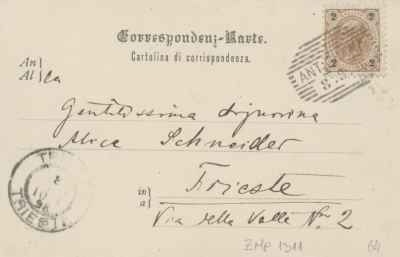 Correspondenz-Karte.
Cartolina di corrispondenza.
An
Al
Gentilissima Signorina
Alice Schneider
in
a
Trieste
Via della Valle Nro 2
2 2
2 2
ANT
TRIEST
ZMP 1311
64